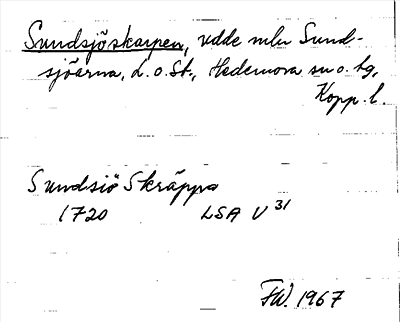 Sundsjöskarpen, udde mln Sund-
sjöarna, L. o. St., Hedemora sn o. tg,
Kopp. l.
Sundsiö Skräppa
1720 LSA V 31
FW. 1967